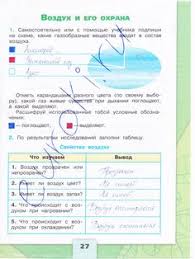 Воздух и его охрана
1. Самостоятельно или с помощью учебника подпиши
на схеме, какие газообразные вещества входят в состав
воздуха.
Кислород
Углекислый газ
Азот
Отметь карандашами разного цвета (по своему выбо-
ру), какой газ живые существа при дыхании поглощают,
а какой выделяют.
Расшифруй использованные тобой условные обозна-
чения.
— поглощают — выделяют
2. По результатам исследования заполни таблицу.
Свойства воздуха
Что изучаем Вывод
1. Воздух прозрачен или
непрозрачен? Прозрачен
2. Имеет ли воздух цвет? Не имеет
3. Имеет ли воздух запах? Не имеет
4. Что происходит с возду-
хом при нагревании? Воздух расширяется
5. Что происходит с возду-
хом при охлаждении? Воздух сжимается
27